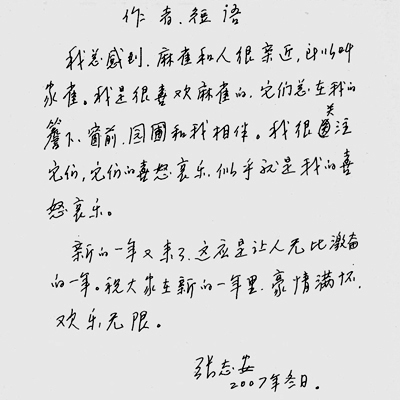 作者短语
我总感到,麻雀和人很亲近,所以叫
家雀。我是很喜欢麻雀的,它们总在我的
簷下、窗前、园圃和我相伴。我很关注
它们,它们的喜怒哀乐,似乎就是我的喜
怒哀乐。
新的一年又来了,这应是让人无比激奋
的一年。祝大家在新的一年里,豪情满怀,
欢乐无限。
张志安
2007年冬日。